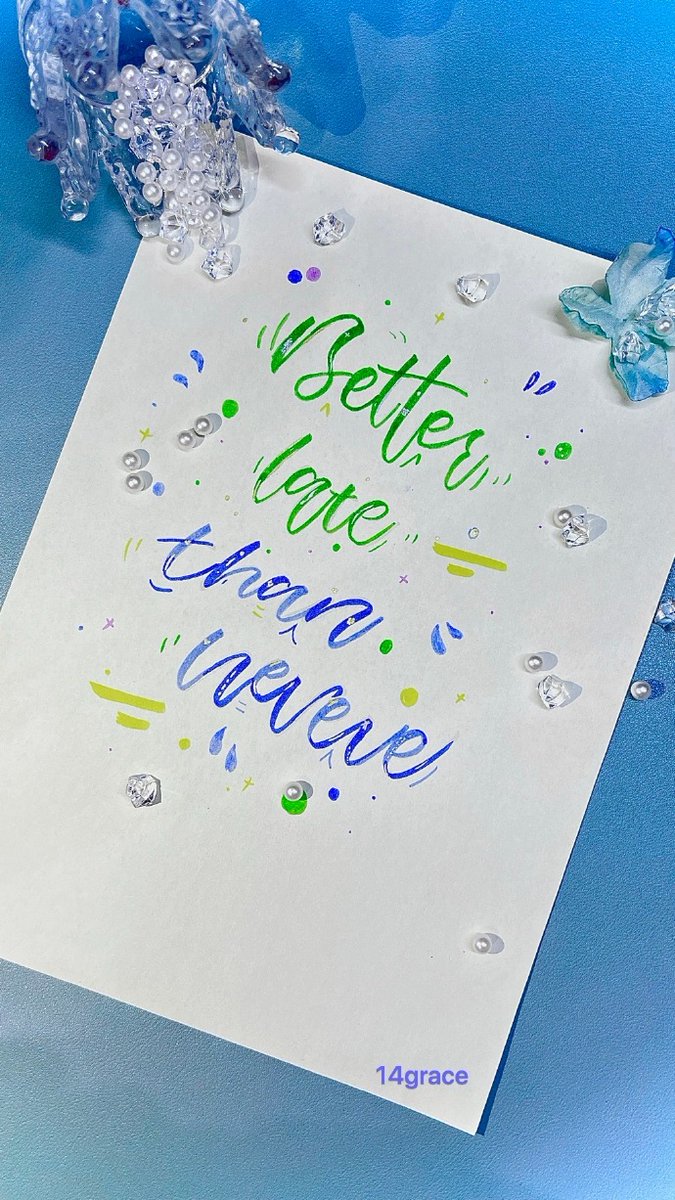 Better
late
than
nevere
14grace